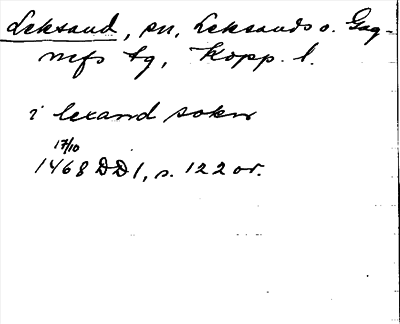 Leksand, sn, Leksands o. Gag-
nefs tg, Kopp. l.
i lexand sokn
17/10
1468 DD1, s. 122 or.